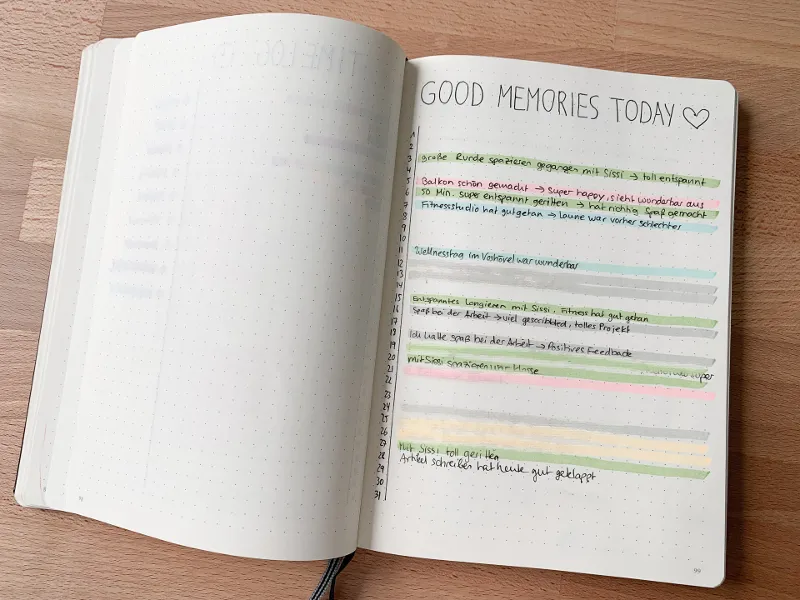 GOOD MEMORIES TODAY ♡
1
2
3 große Runde spazieren gegangen mit Sissi → toll entspannt
4
5 Balkon schön gemacht → super happy, sieht wunderbar aus
6 50 Min. super entspannt geritten → hat richtig Spaß gemacht
7 Fitnessstudio hat gut getan → Laune war vorher schlechter
8
9
10
11 Wellnesstag im Voshövel war wunderbar
12
13
14
15 Entspanntes Longieren mit Sissi, Fitness hat gut getan
16 Spaß bei der Arbeit → viel gescribbled, tolles Projekt
17
18 Ich hatte spaß bei der Arbeit → Positives Feedback
19
20 mit Sissi spazieren super
21
22
23
24
25
26
27 Mit Sissi toll geritten
28 Artikel schreiben hat heute gut geklappt
29
30
31
99